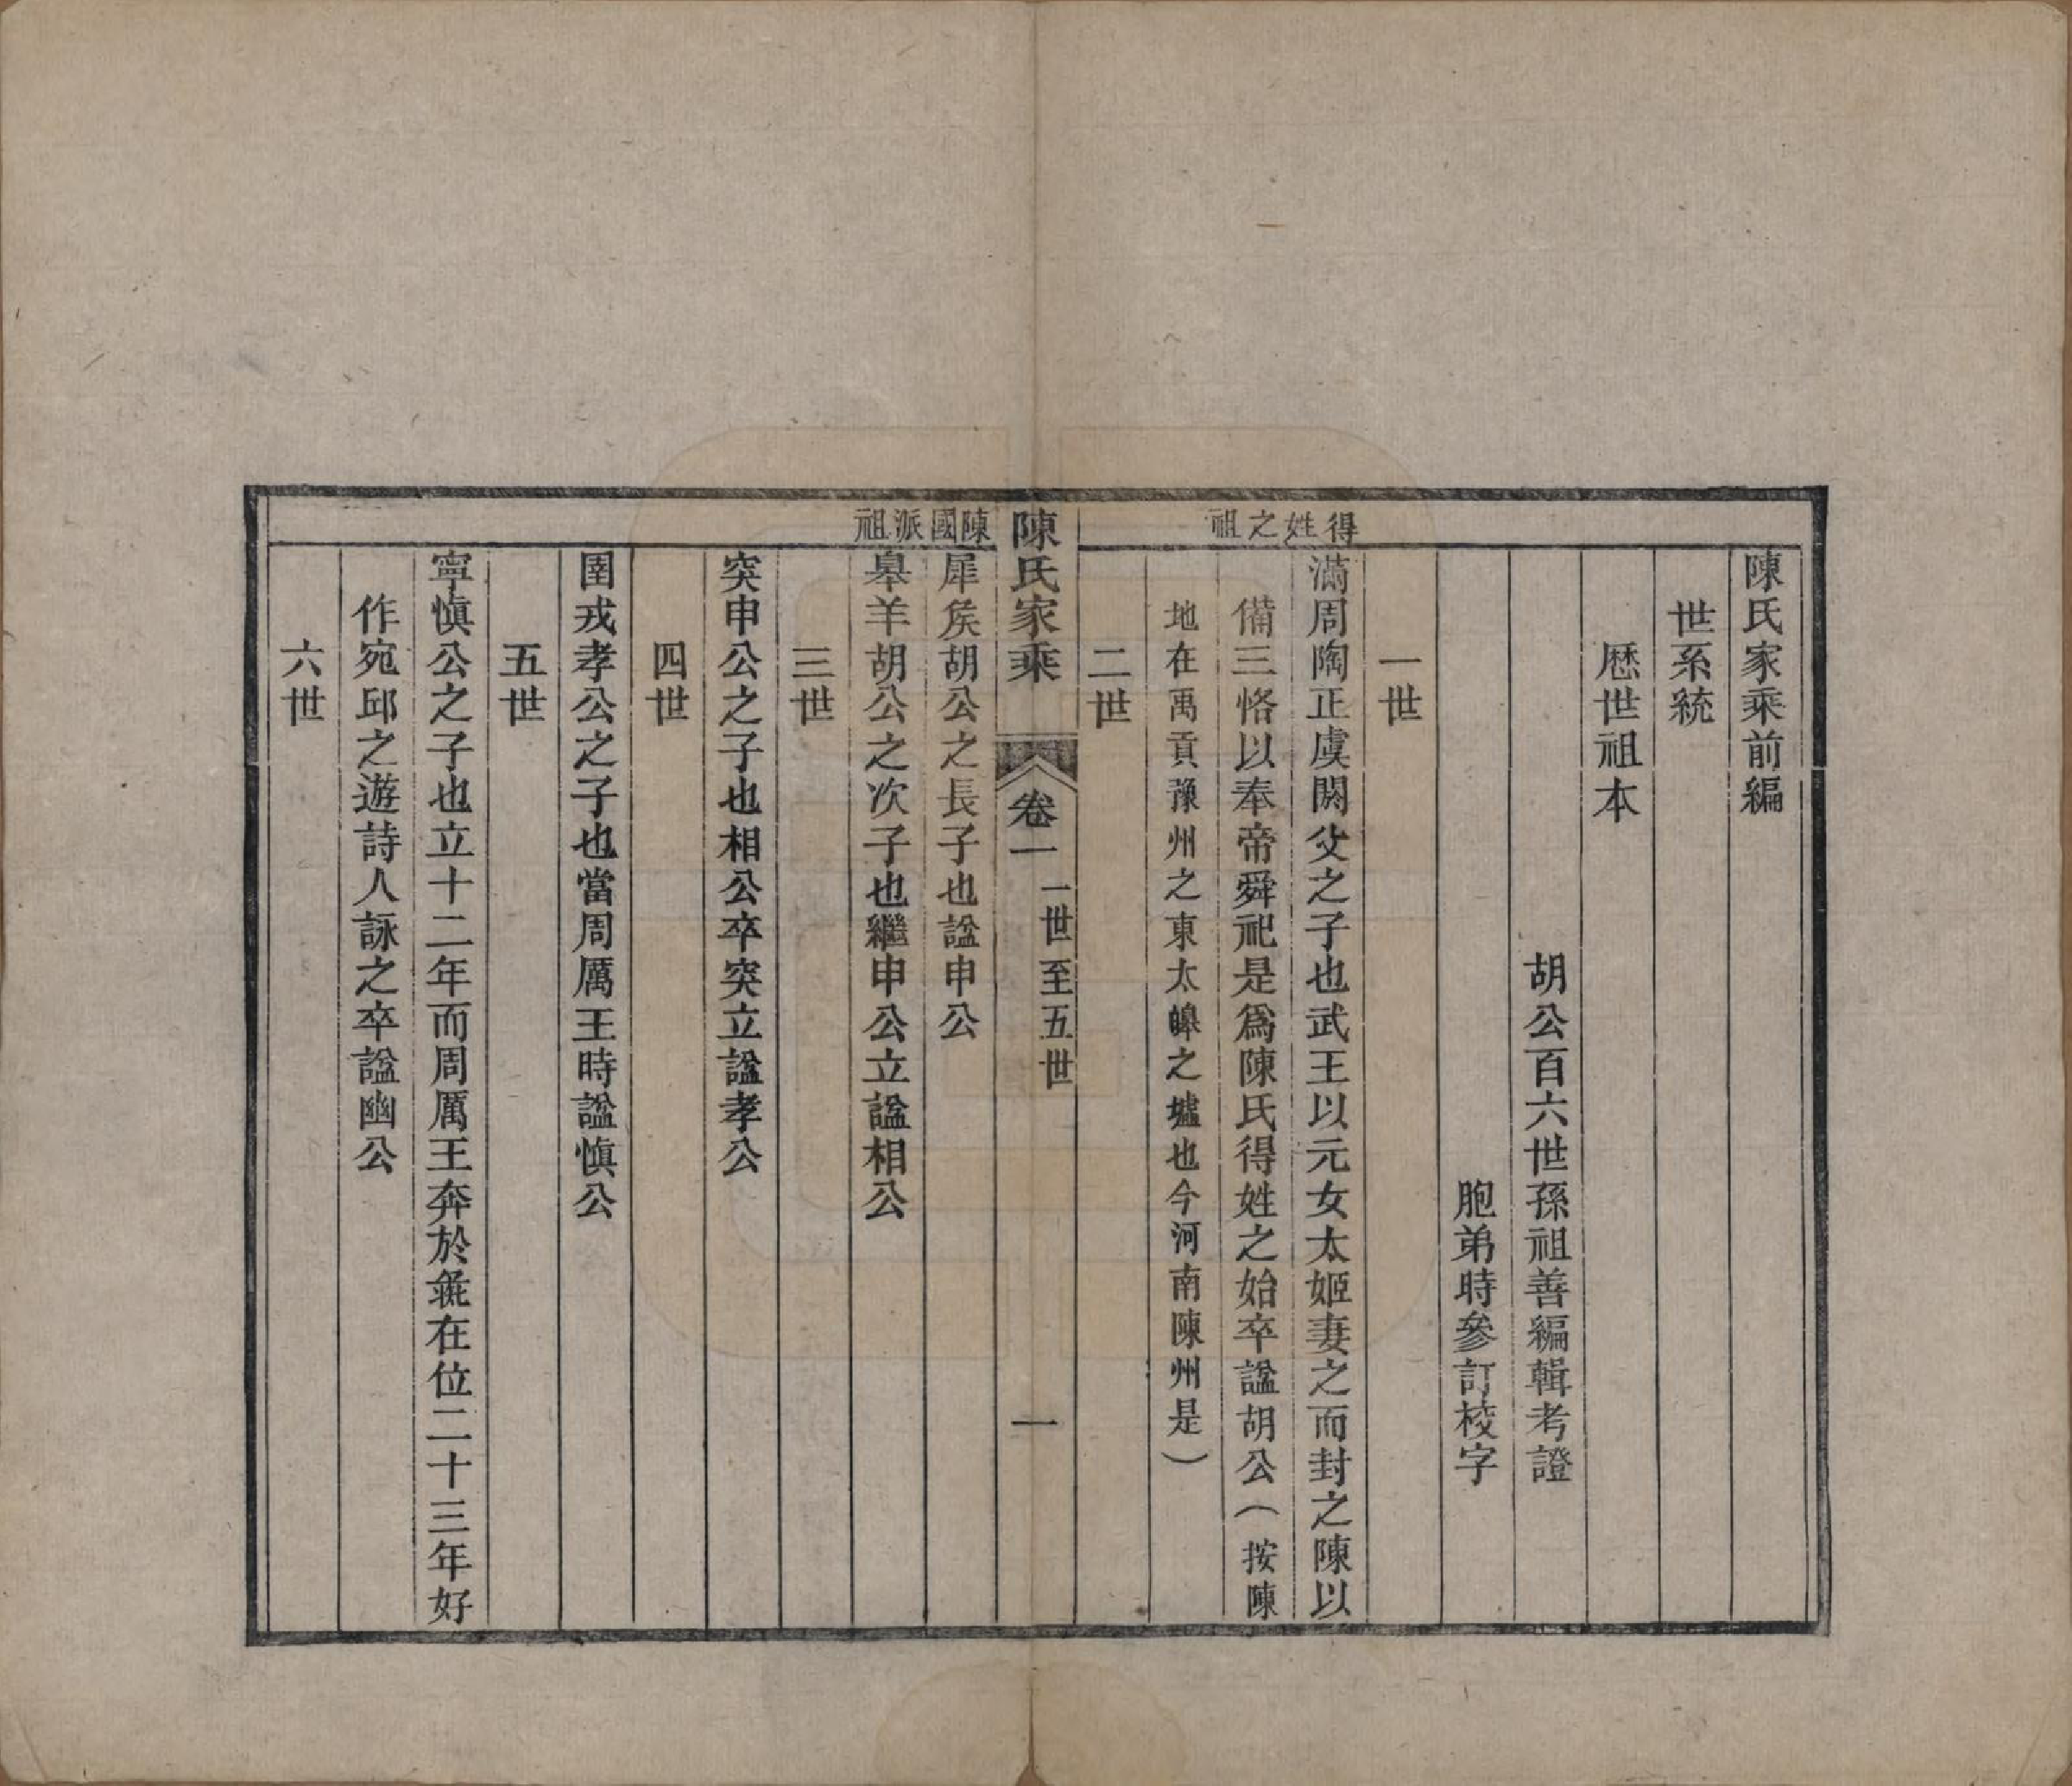 陳氏家乘前編
世系統
厯世祖本
胡公百六世孫祖善編輯考證
胞弟時參訂校字
一世
得姓之祖
滿周陶正虞閼父之子也武王以元女太姬妻之而封之陳以
備三恪以奉帝舜祀是爲陳氏得姓之始卒諡胡公（按陳
地在禹貢豫州之東太皞之墟也今河南陳州是）
二世
陳氏家乘
卷一
一世至五世
一
陳國派祖
犀矦胡公之長子也諡申公
皋羊胡公之次子也繼申公立諡相公
三世
突申公之子也相公卒突立諡孝公
四世
圉戎孝公之子也當周厲王時諡慎公
五世
寧慎公之子也立十二年而周厲王奔於彘在位二十三年好
作宛邱之遊詩人詠之卒諡幽公
六世